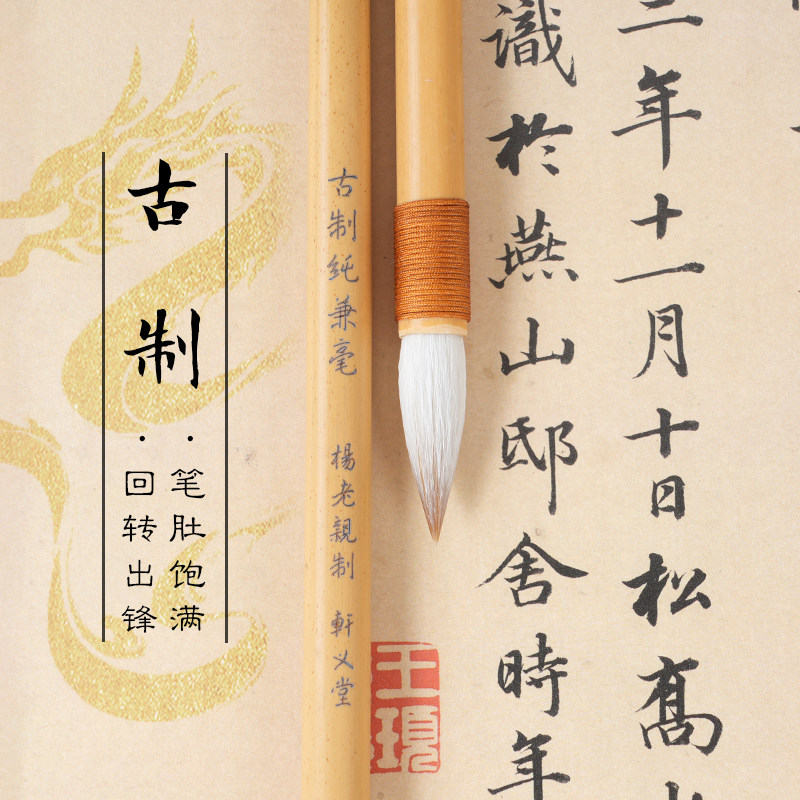 古制
·笔肚饱满
·回转出锋
古制纯兼毫 楊老親制 軒义堂
二年十一月十日松髙
識於燕山邸舍時年